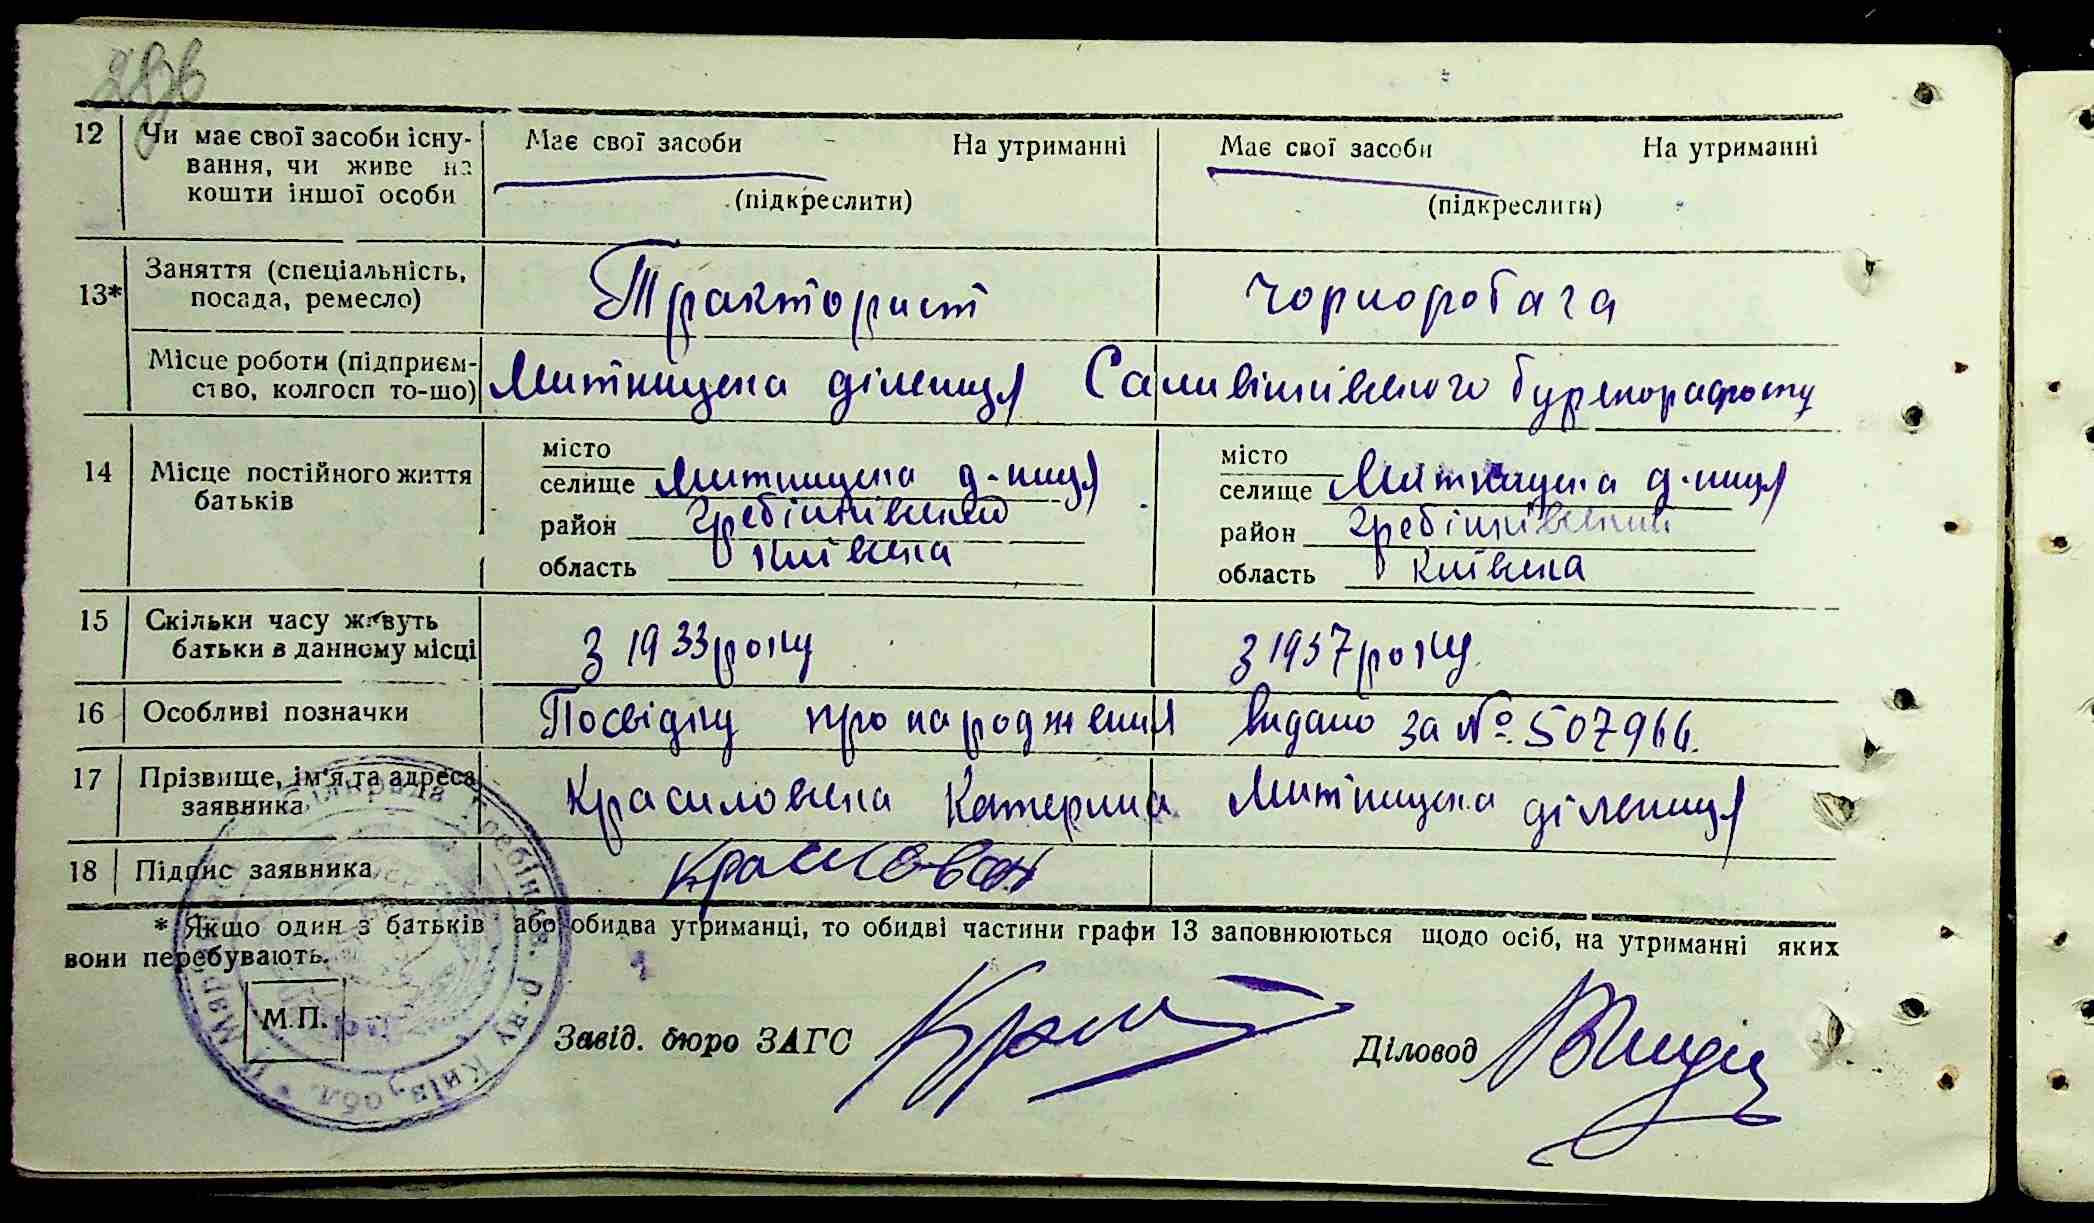 12 Чи має свої засоби існу- Має свої засоби На утриманні Має свої засоби На утриманні
вання, чи живе на
кошти іншої особи (підкреслити) (підкреслити)
13* Заняття (спеціальність, Тракторист Чорноробача
посада, ремесло)
Місце роботи (підприєм- Митницька дільниця Саливінківського бурякорадгоспу
ство, колгосп то-що)
14 Місце постійного життя місто місто
батьків селище Митницька д-ниця селище Митницька д-ниця
район Гребінківський район Гребінківський
область Київська область Київська
15 Скільки часу живуть З 1933 року З 1937 року
батьки в данному місці
16 Особливі позначки Посвідку про народження видано за № 507966.
17 Прізвище, ім'я та адреса Красиловська Катерина Митницька дільниця
заявника
18 Підпис заявника
* Якщо один з батьків або обидва утриманці, то обидві частини графи 13 заповнюються щодо осіб, на утриманні яких
вони перебувають.
М.П. Завід. бюро ЗАГС Діловод